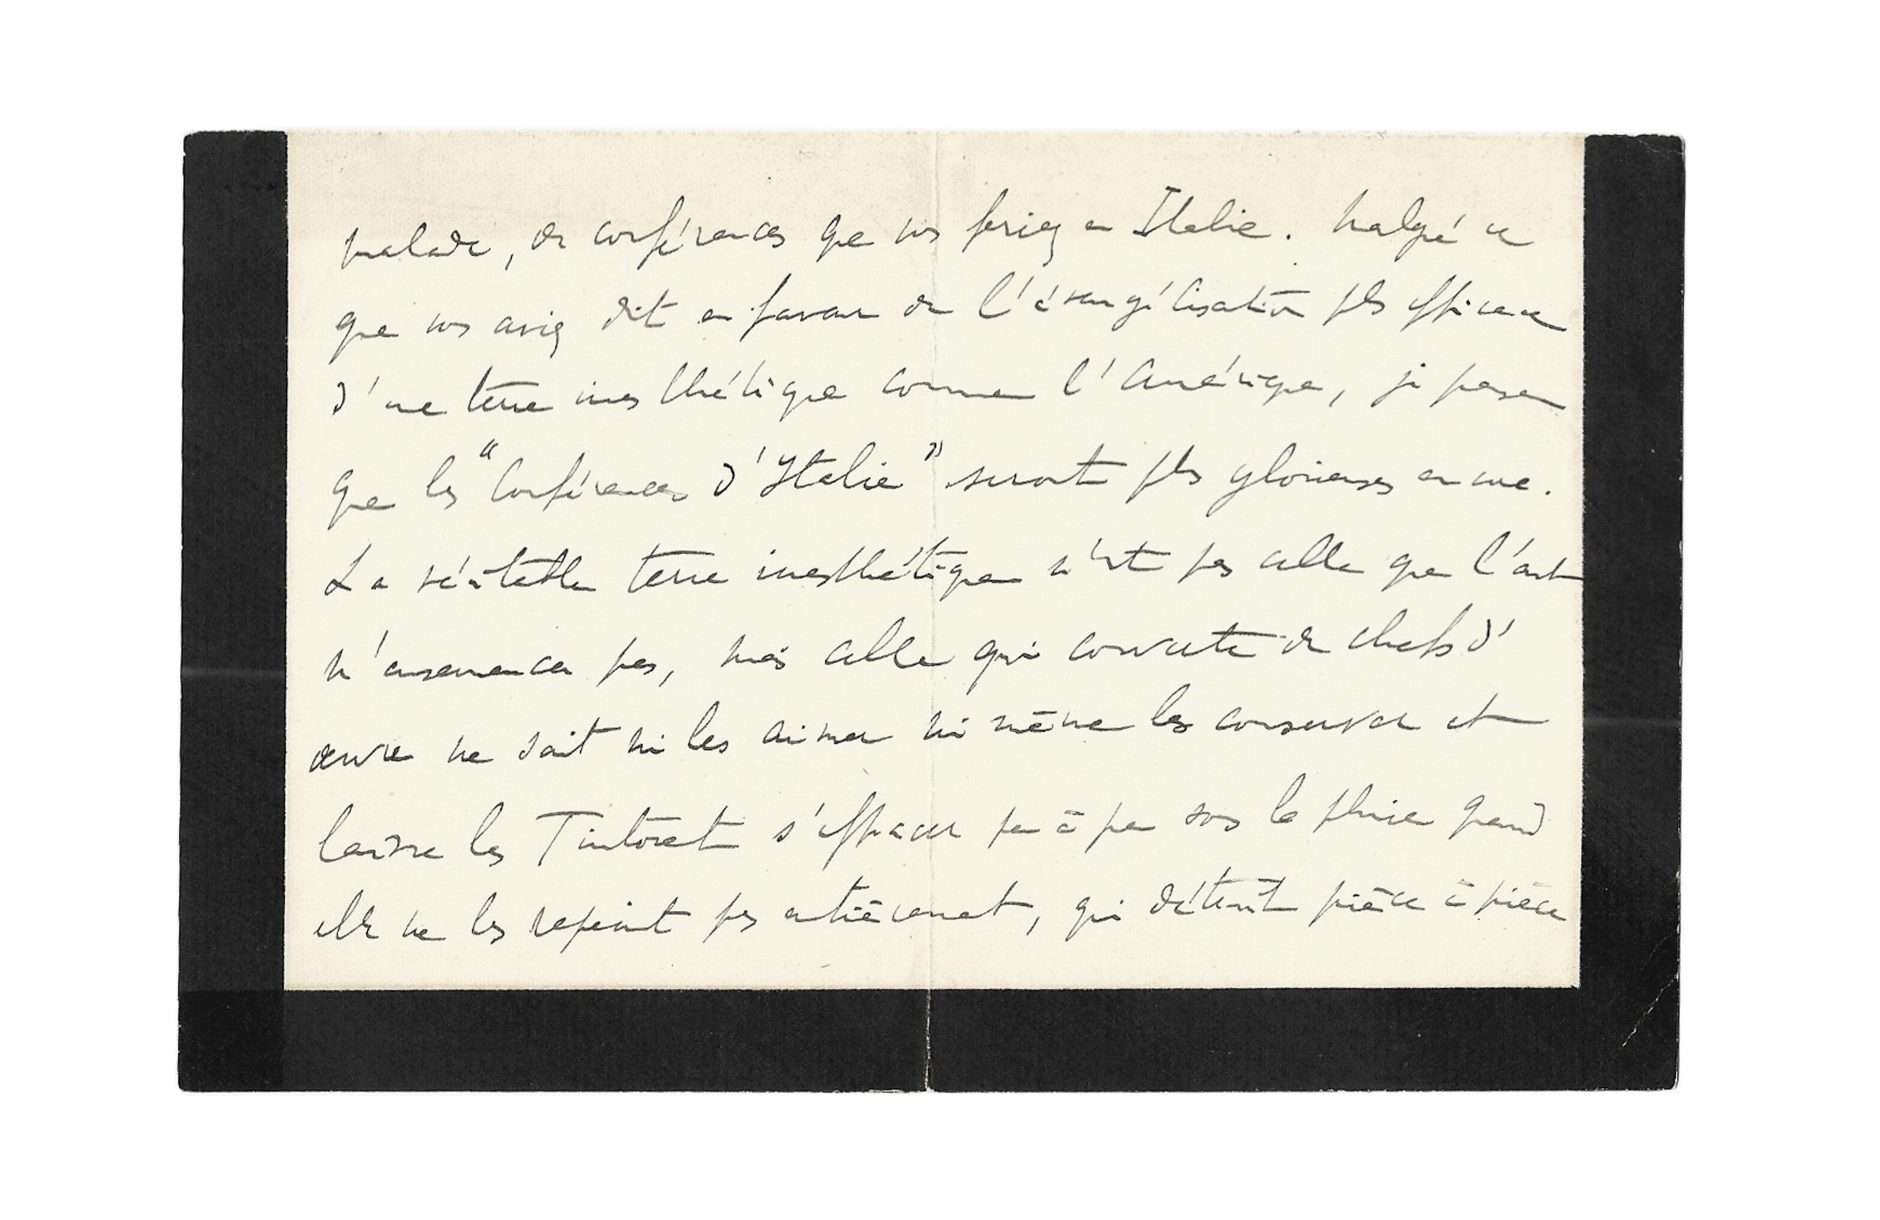 malade, de conférences que vous feriez en Italie. Malgré ce
que vous aviez dit en faveur de l'évangélisation plus efficace
d'une terre inesthétique comme l'Amérique, je pense
que les "Conférences d'Italie" seront plus glorieuses encore.
La véritable terre inesthétique n'est pas celle que l'art
n'ensemence pas, mais celle qui couverte de chefs d'
œuvre ne sait ni les aimer ni même les conserver et
laisse les Tintoret s'effacer peu à peu sous la pluie quand
elle ne les repeint pas entièrement, qui détruit pièce à pièce